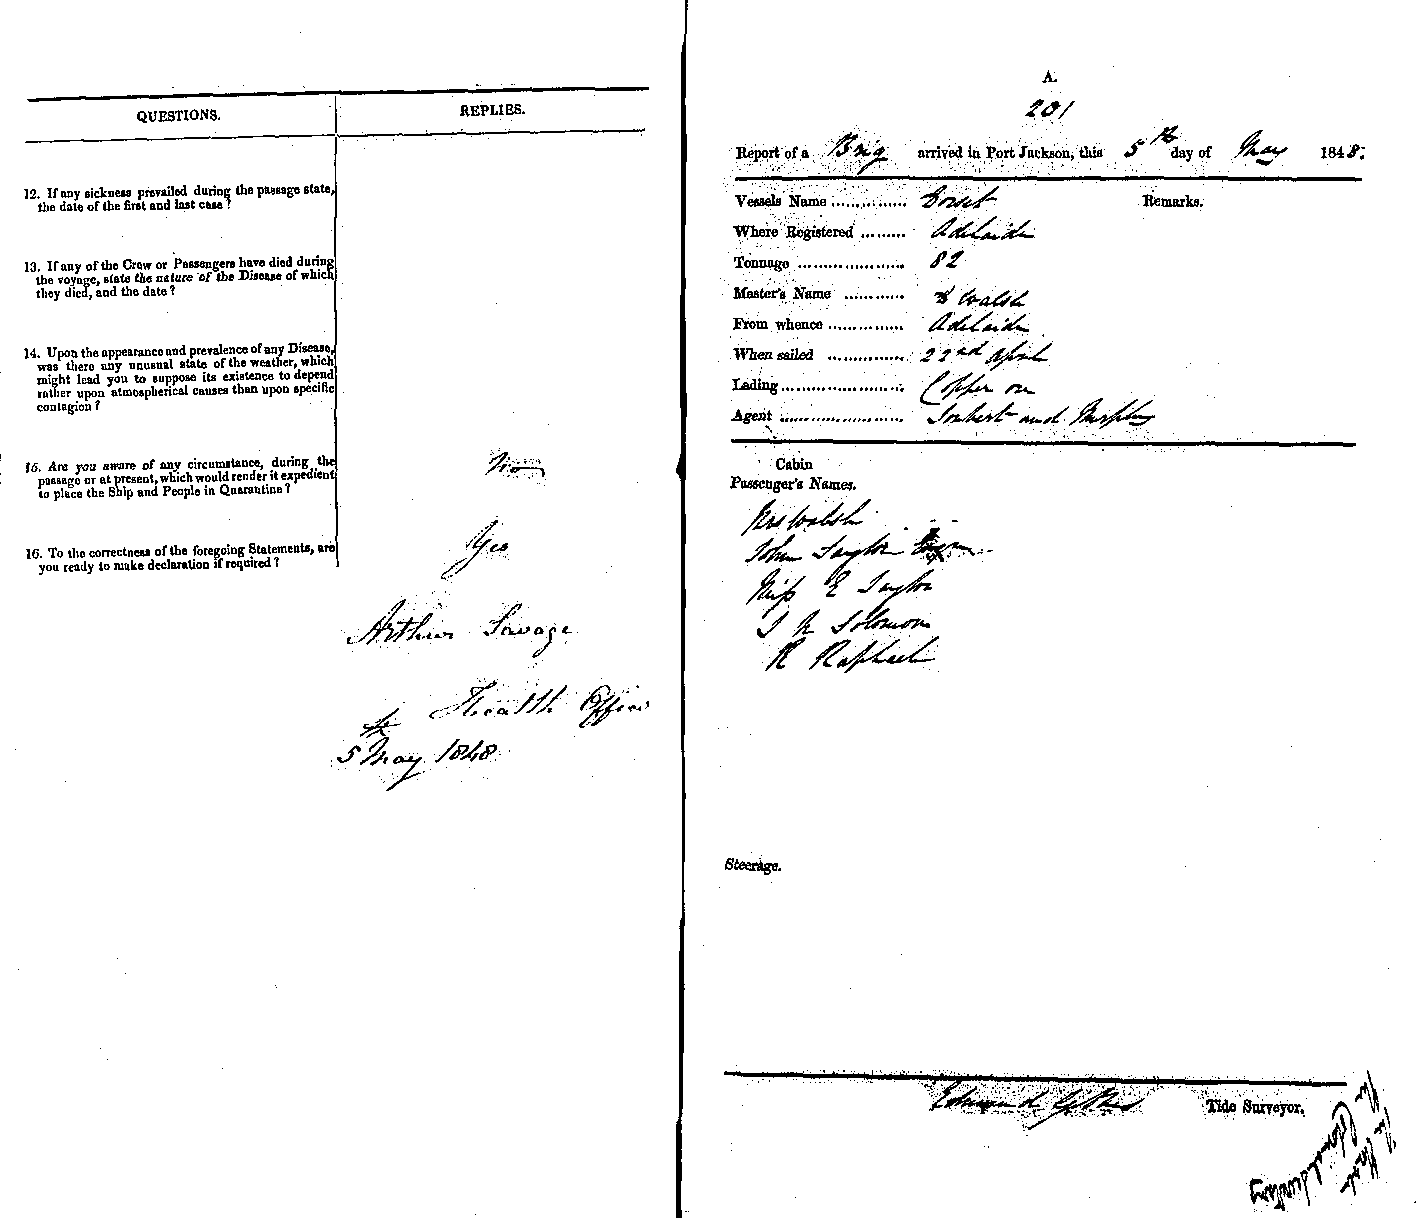 QUESTIONS.
REPLIES.
12. If any sickness prevailed during the passage state, the date of the first and last case?
13. If any of the Crew or Passengers have died during the voyage, state the nature of the Disease of which they died, and the date?
14. Upon the appearance and prevalence of any Disease, was there any unusual state of the weather, which might lead you to suppose its existence to depend rather upon atmospherical causes than upon specific contagion?
15. Are you aware of any circumstance, during the passage or at present, which would render it expedient to place the Ship and People in Quarantine?
No
16. To the correctness of the foregoing Statements, are you ready to make declaration if required?
Yes
Arthur Savage
Health Officer
5 May 1848
A.
201
Report of a Brig arrived in Port Jackson, this 5th day of May 1848.
Vessels Name ............... Dorset
Remarks.
Where Registered ......... Adelaide
Tonnage ..................... 82
Master's Name ............ Walsh
From whence ............... Adelaide
When sailed ............... 22nd April
Lading........................ Copper ore
Agent ........................ Joubert and Murphy
Cabin
Passenger's Names.
Mrs Walsh
John Taylor
Miss E Taylor
Solomon
R Raphael
Steerage.
Edmund
Tide Surveyor.